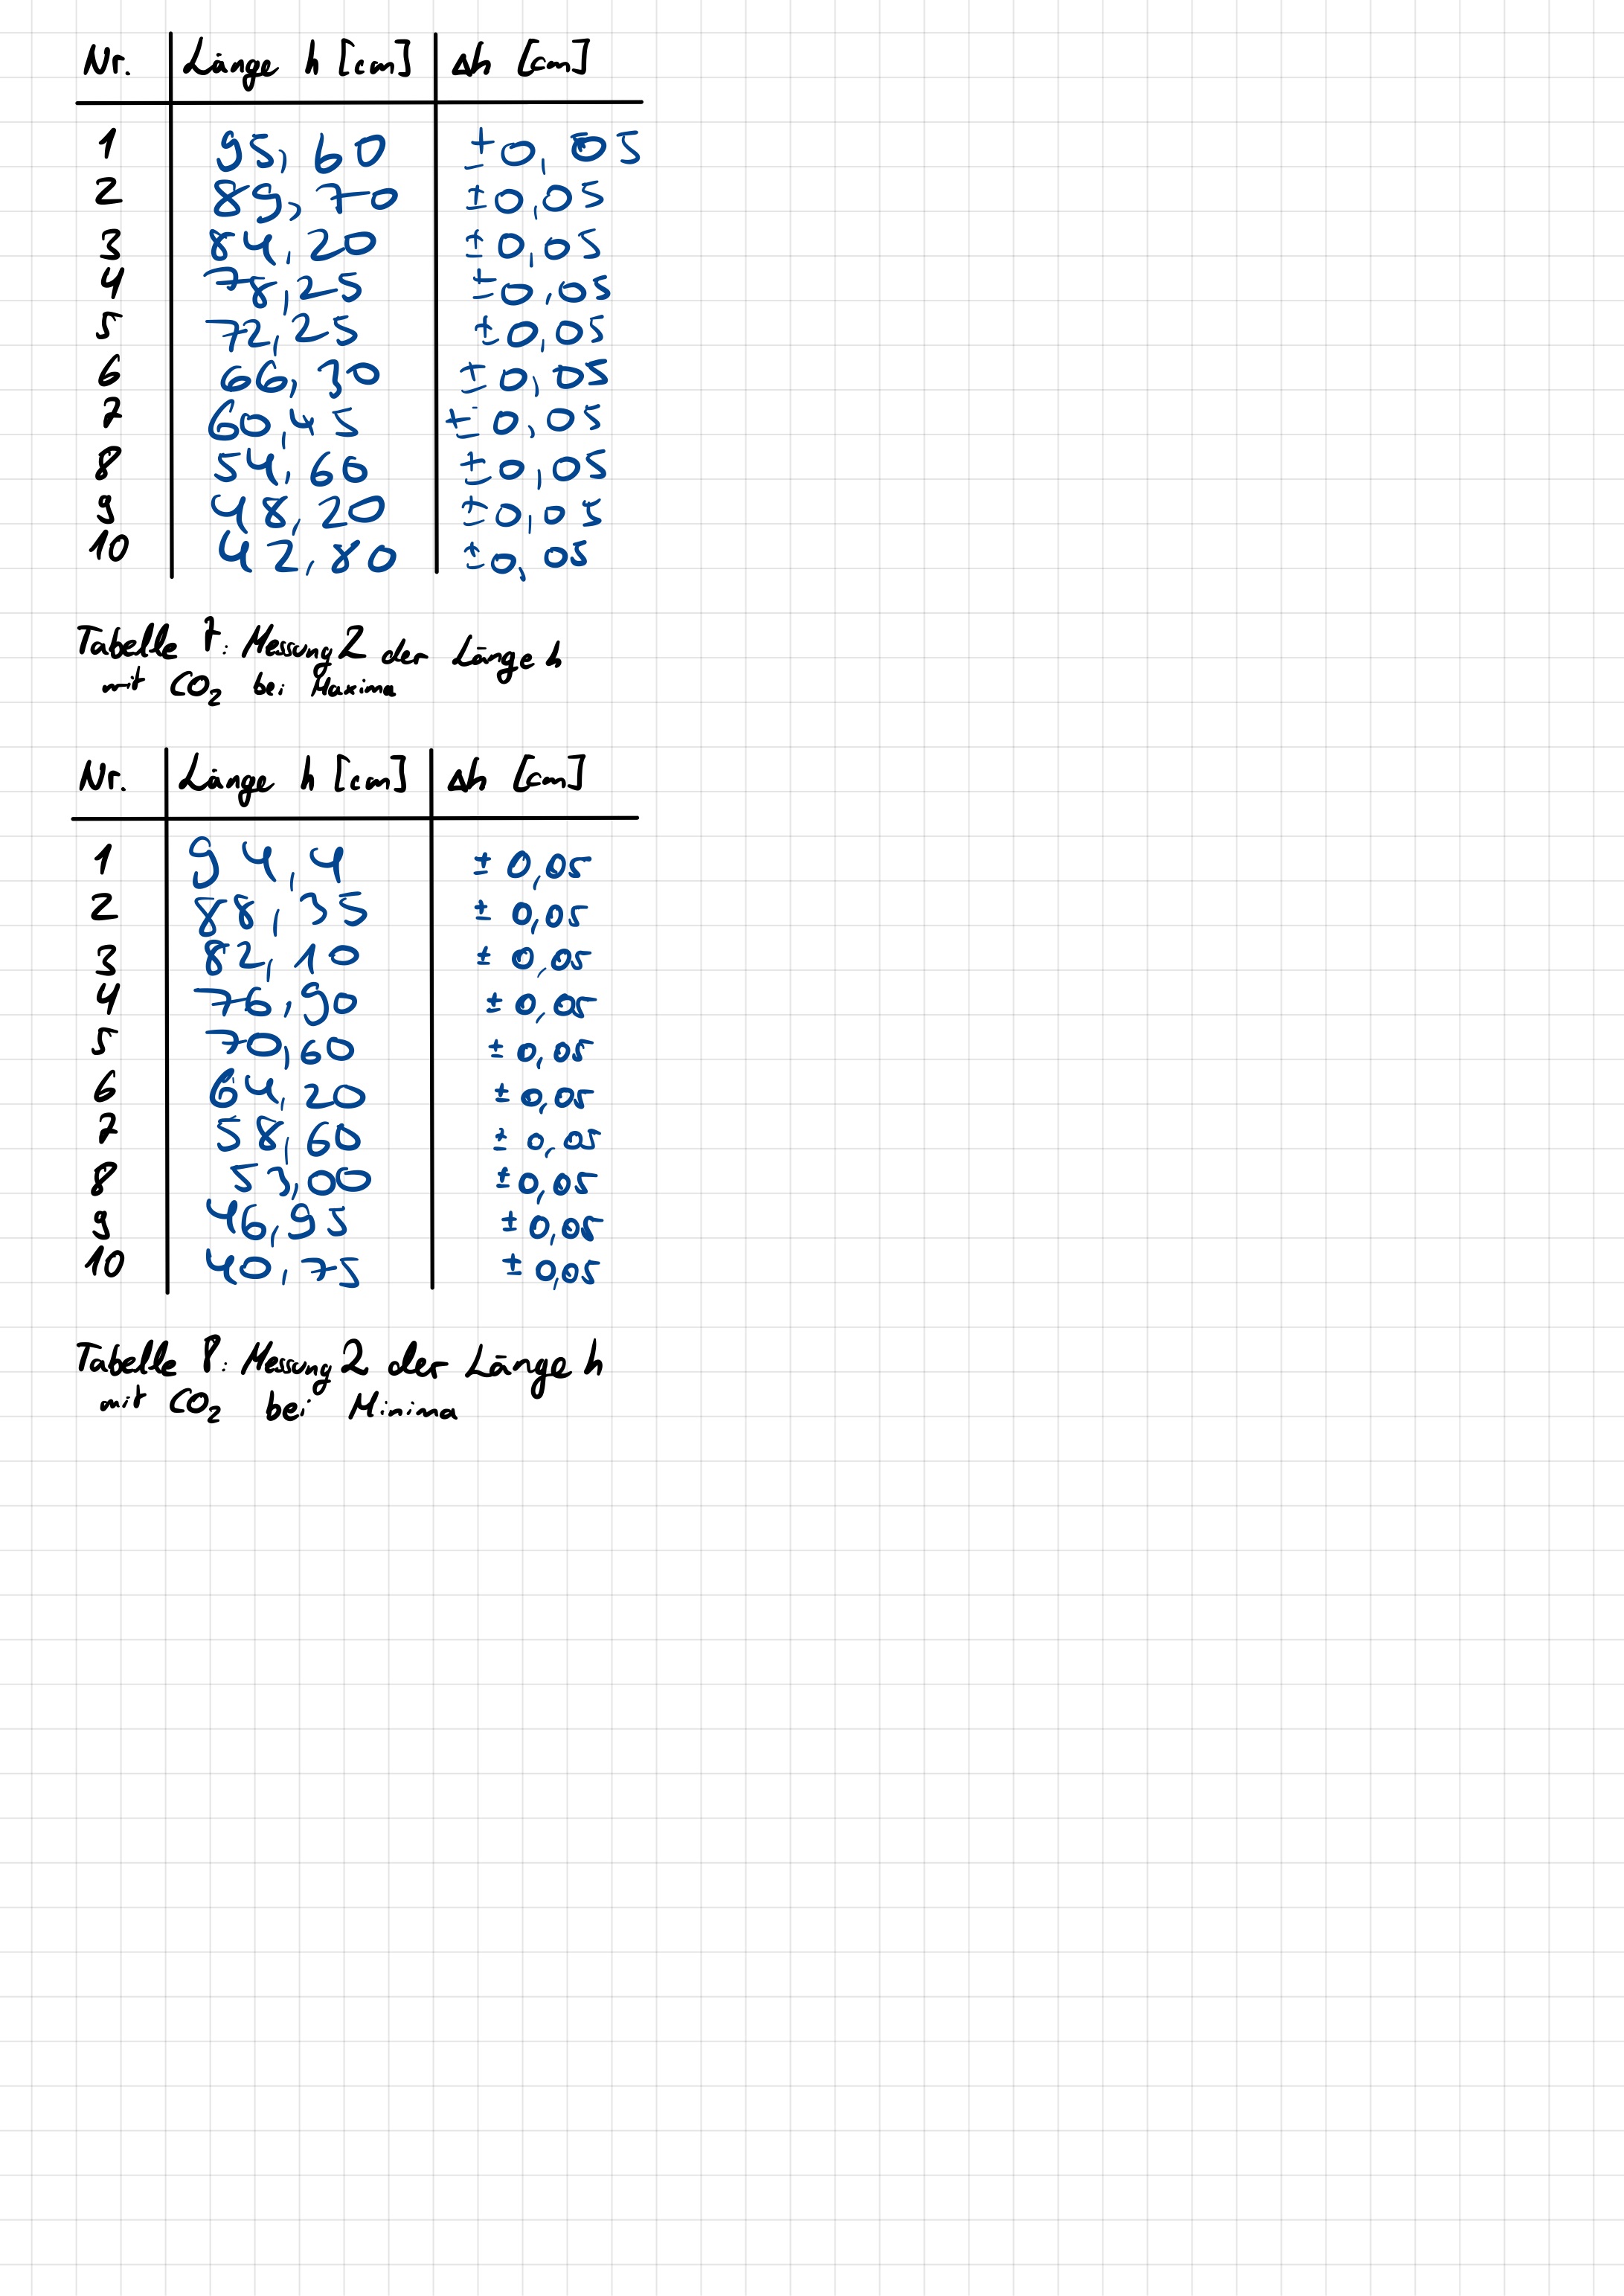 Nr. Länge h [cm] Δh [cm]
1 95,60 ±0,05
2 89,70 ±0,05
3 84,20 ±0,05
4 78,25 ±0,05
5 72,25 ±0,05
6 66,30 ±0,05
7 60,45 ±0,05
8 54,60 ±0,05
9 48,20 ±0,05
10 42,80 ±0,05
Tabelle 7: Messung 2 der Länge h
mit CO₂ bei Maxima
Nr. Länge h [cm] Δh [cm]
1 94,4 ± 0,05
2 88,35 ± 0,05
3 82,10 ± 0,05
4 76,90 ± 0,05
5 70,60 ± 0,05
6 64,20 ± 0,05
7 58,60 ± 0,05
8 53,00 ± 0,05
9 46,95 ± 0,05
10 40,75 ± 0,05
Tabelle 8: Messung 2 der Länge h
mit CO₂ bei Minima